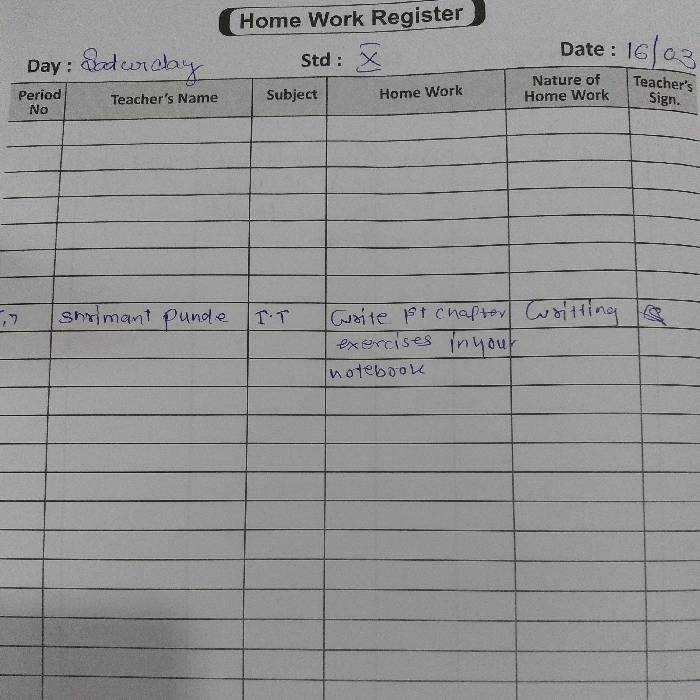 Home Work Register
Day : Saturday Std : X Date : 16/03
Period No Teacher's Name Subject Home Work Nature of Home Work Teacher's Sign.
,7 Shrimant Punde I.T Write 1st chapter Writting
exercises in your
notebook